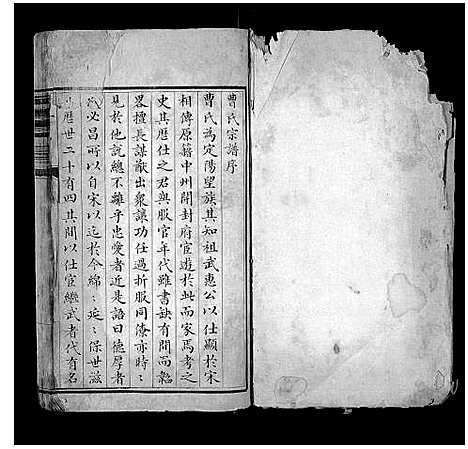 曹氏宗譜序
曹氏為定陽望族其知祖武惠公以仕顯於宋
相傳原籍中州開封府宦遊於此而家焉考之
史其歷仕之君與服官年代雖書缺有間而韜
畧擅長謀猷出眾讓功仕過折服同僚亦時〻
見於他說總不離乎忠愛者近是語曰德厚者
必昌所以自宋以迄於今綿〻延〻保世滋
歷世二十有四其間以仕宦繼武者代有名